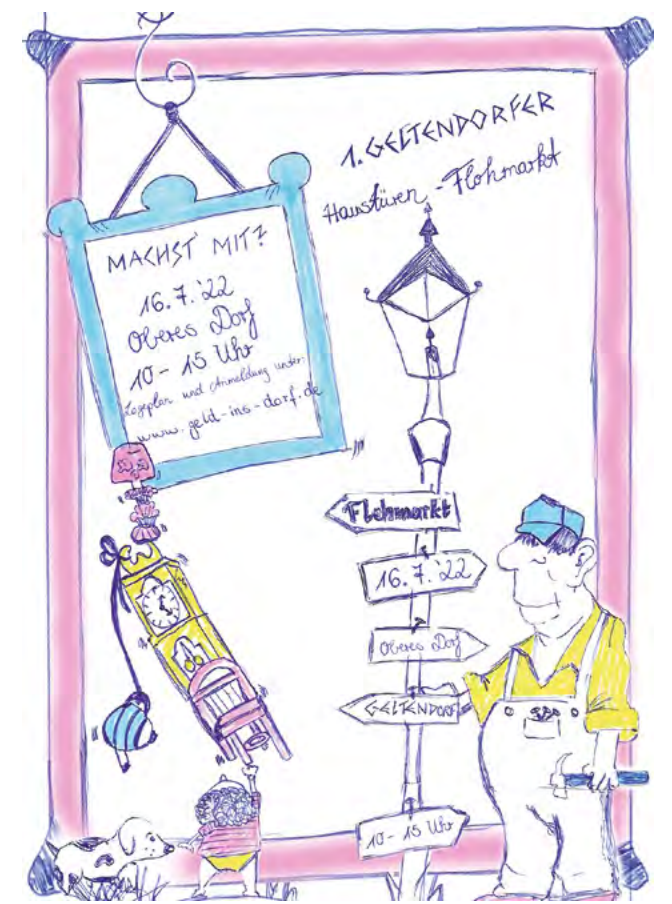 1. GELTENDORFER
Haustüren - Flohmarkt
MACHST MIT?
16.7.'22
Oberes Dorf
10 - 15 Uhr
Lageplan und Anmeldung unter:
www.geld-ins-dorf.de
Flohmarkt
16.7.'22
Oberes Dorf
GELTENDORF
10 - 15 Uhr